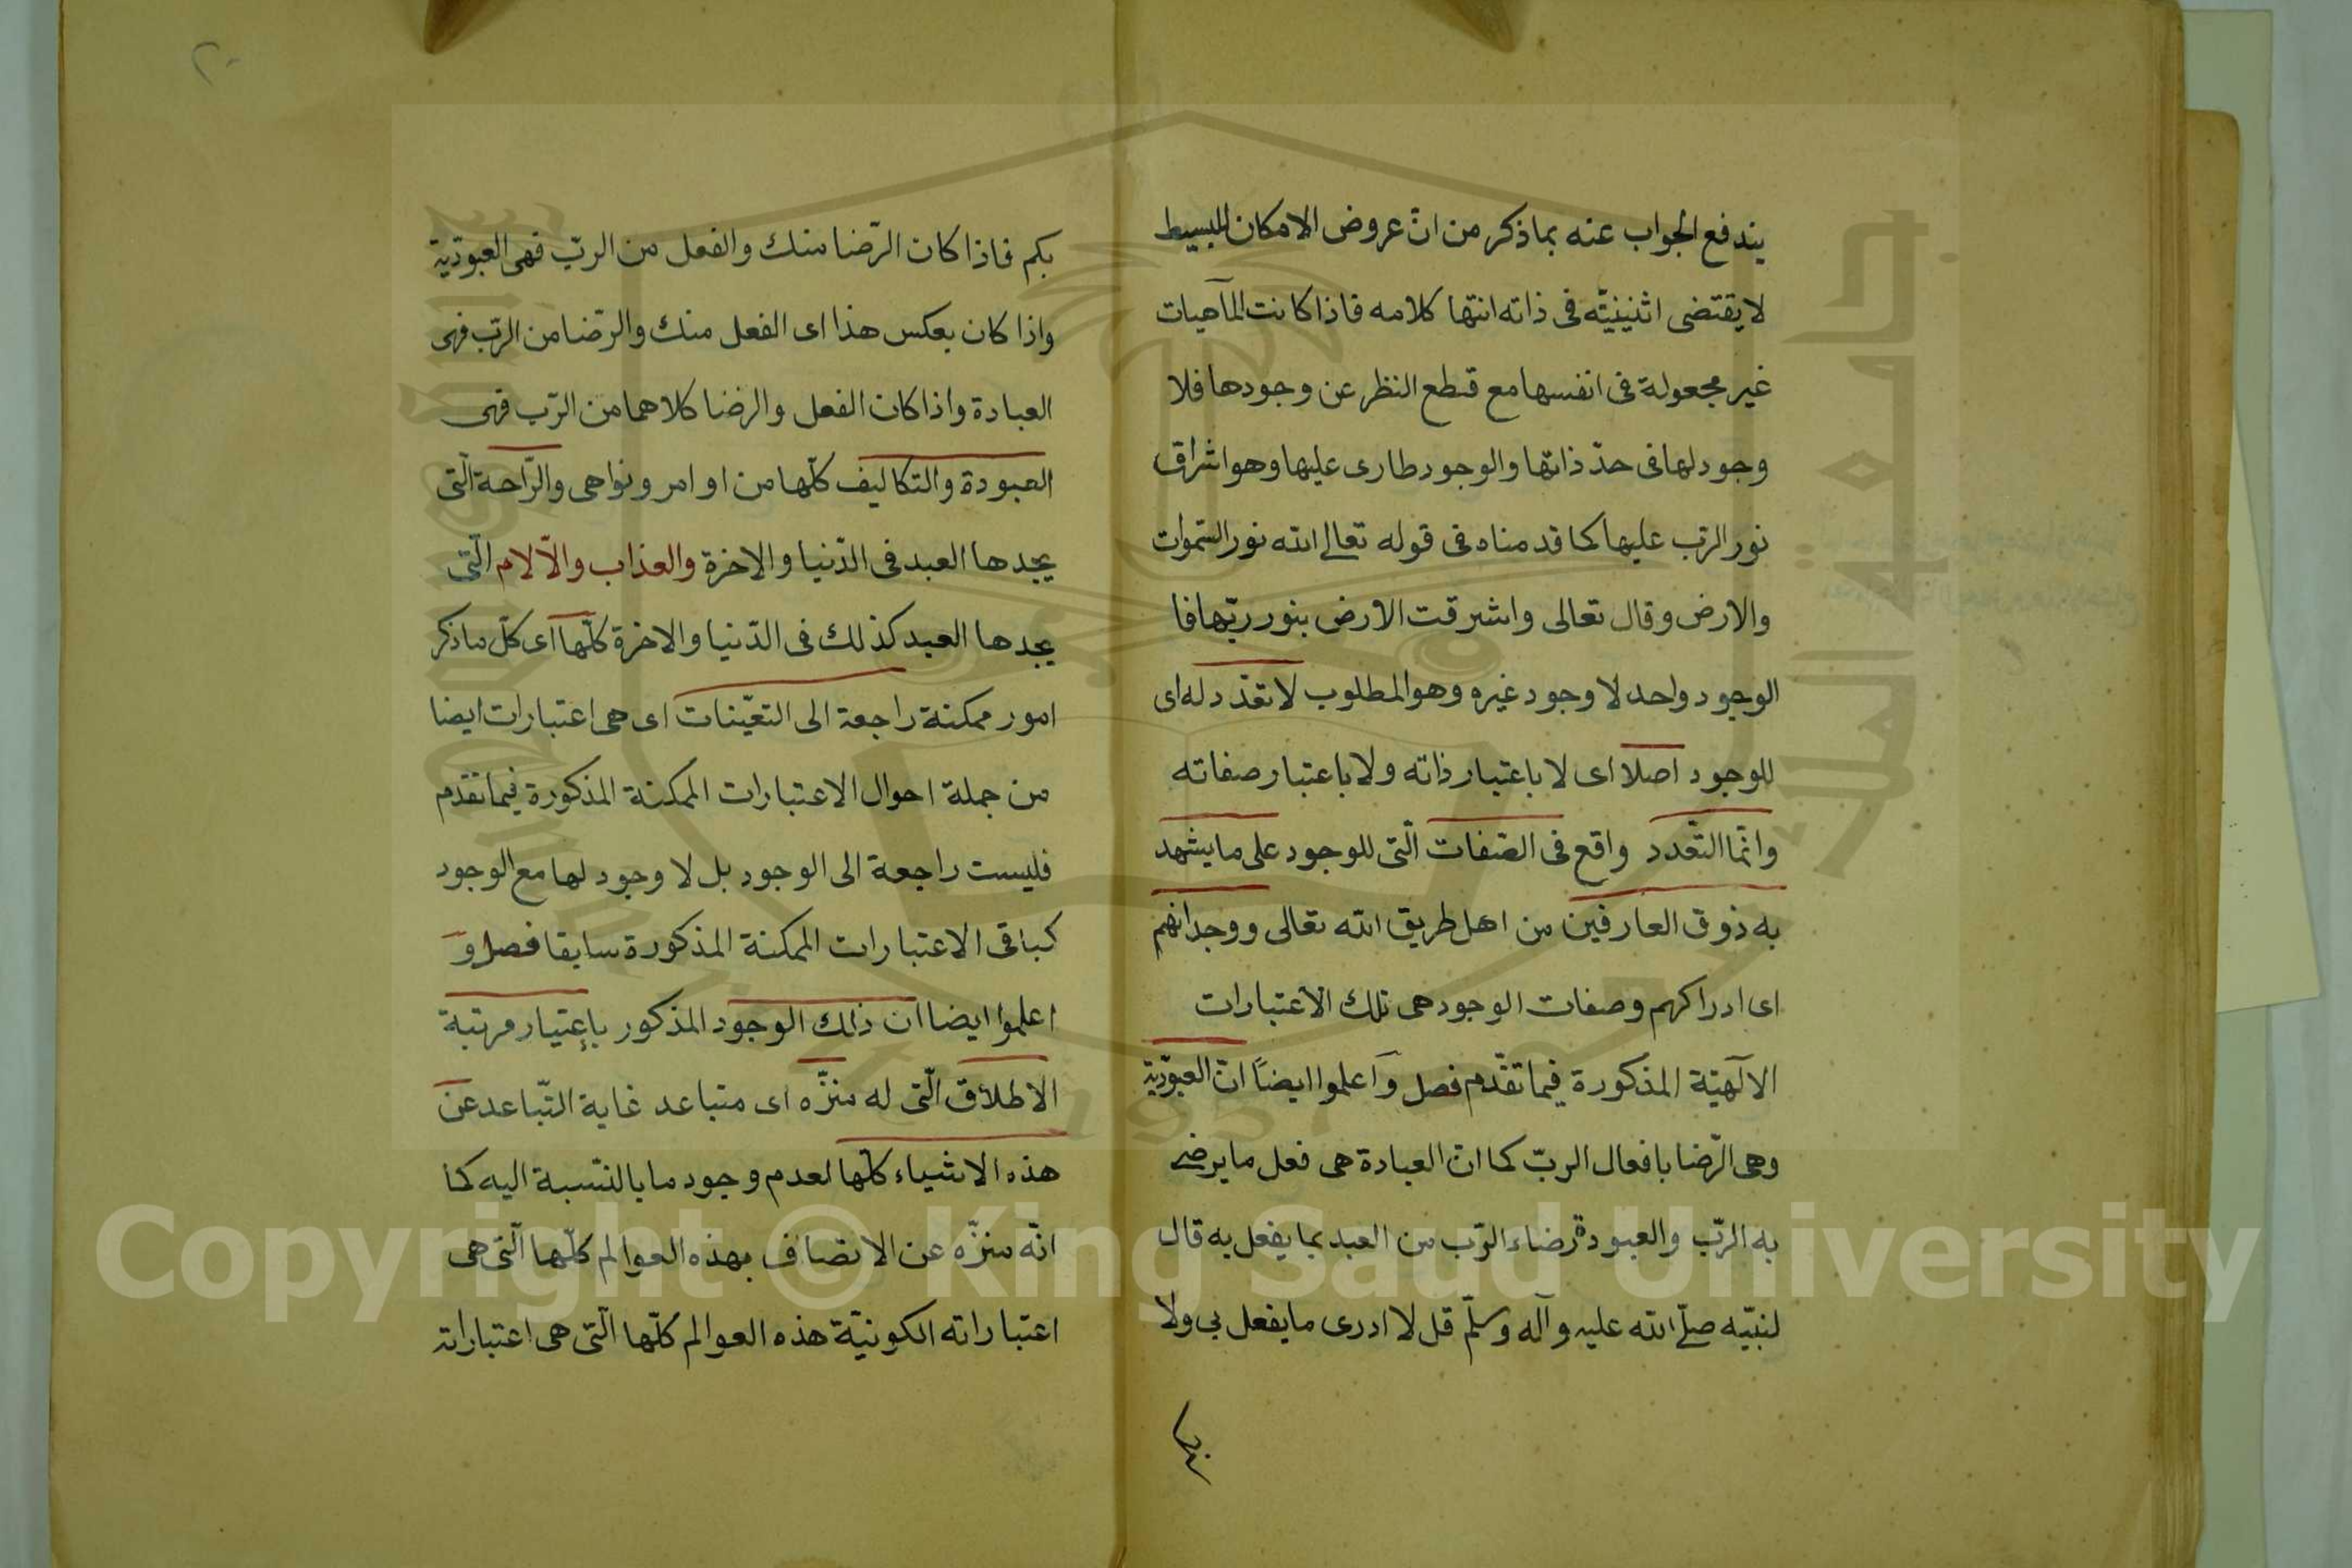 يندفع الجواب عنه بما ذكر من انّ عروض الامكان للبسيط
لا يقتضى اثنينيّته فى ذاته انتها كلامه فاذا كانت المآهيات
غير مجعولة فى انفسها مع قطع النظر عن وجودها فلا
وجود لها فى حدّ ذاتها والوجود طارى عليها وهو اشراق
نور الرّب عليها كما قدمناه فى قوله تعالى الله نور السّموات
والارض وقال تعالى واشرقت الارض بنور ربّها فا
الوجود واحد لا وجود غيره وهو المطلوب لا تعدّد له اى
للوجود اصلا اى لا باعتبار ذاته ولا باعتبار صفاته
وانّما التّعدد واقع فى الصّفات الّتى للوجود على ما يشهد
به ذوق العارفين من اهل طريق الله تعالى ووجدانهم
اى ادراكهم وصفات الوجود هى تلك الاعتبارات
الآلهيّة المذكورة فيما تقدّم فصل وَاعلموا ايضاً انّ العبوديّة
وهى الرّضا بافعال الربّ كما انّ العبادة هى فعل ما يرضى
به الرّب والعبودة رضاء الرّب من العبد بما يفعل به قال
لنبيّه صلّى الله عليه وآله وسلّم قل لا ادرى ما يفعل بى ولا
بكم
٢٠
بكم فاذا كان الرّضا منك والفعل من الربّ فهى العبوديّة
واذا كان بعكس هذا اى الفعل منك والرّضا من الرّب فهى
العبادة واذا كان الفعل والرضا كلاهما من الرّب فهى
العبودة والتكاليف كلّها من اوامر ونواهى والرّاحة الّتى
يجدها العبد فى الدّنيا والاخرة والعذاب والآلام الّتى
يجدها العبد كذلك فى الدّنيا والاخرة كلّها اى كلّ ما ذكر
امور ممكنة راجعة الى التعيّنات اى هى اعتبارات ايضا
من جملة احوال الاعتبارات الممكنة المذكورة فيما تقدم
فليست راجعة الى الوجود بل لا وجود لها مع الوجود
كباقى الاعتبارات الممكنة المذكورة سابقا فصل وَ
اعلموا ايضا ان ذلك الوجود المذكور بإعتبار مرتبة
الاطلاق الّتى له منزّه اى متباعد غاية التّباعد عن
هذه الاشياء كلّها لعدم وجود ما بالنّسبة اليه كما
انّه منزّه عن الاتصاف بهذه العوالم كلّها الّتى هى
اعتباراته الكونيّة هذه العوالم كلّها الّتى هى اعتباراته
Copyright © King Saud University